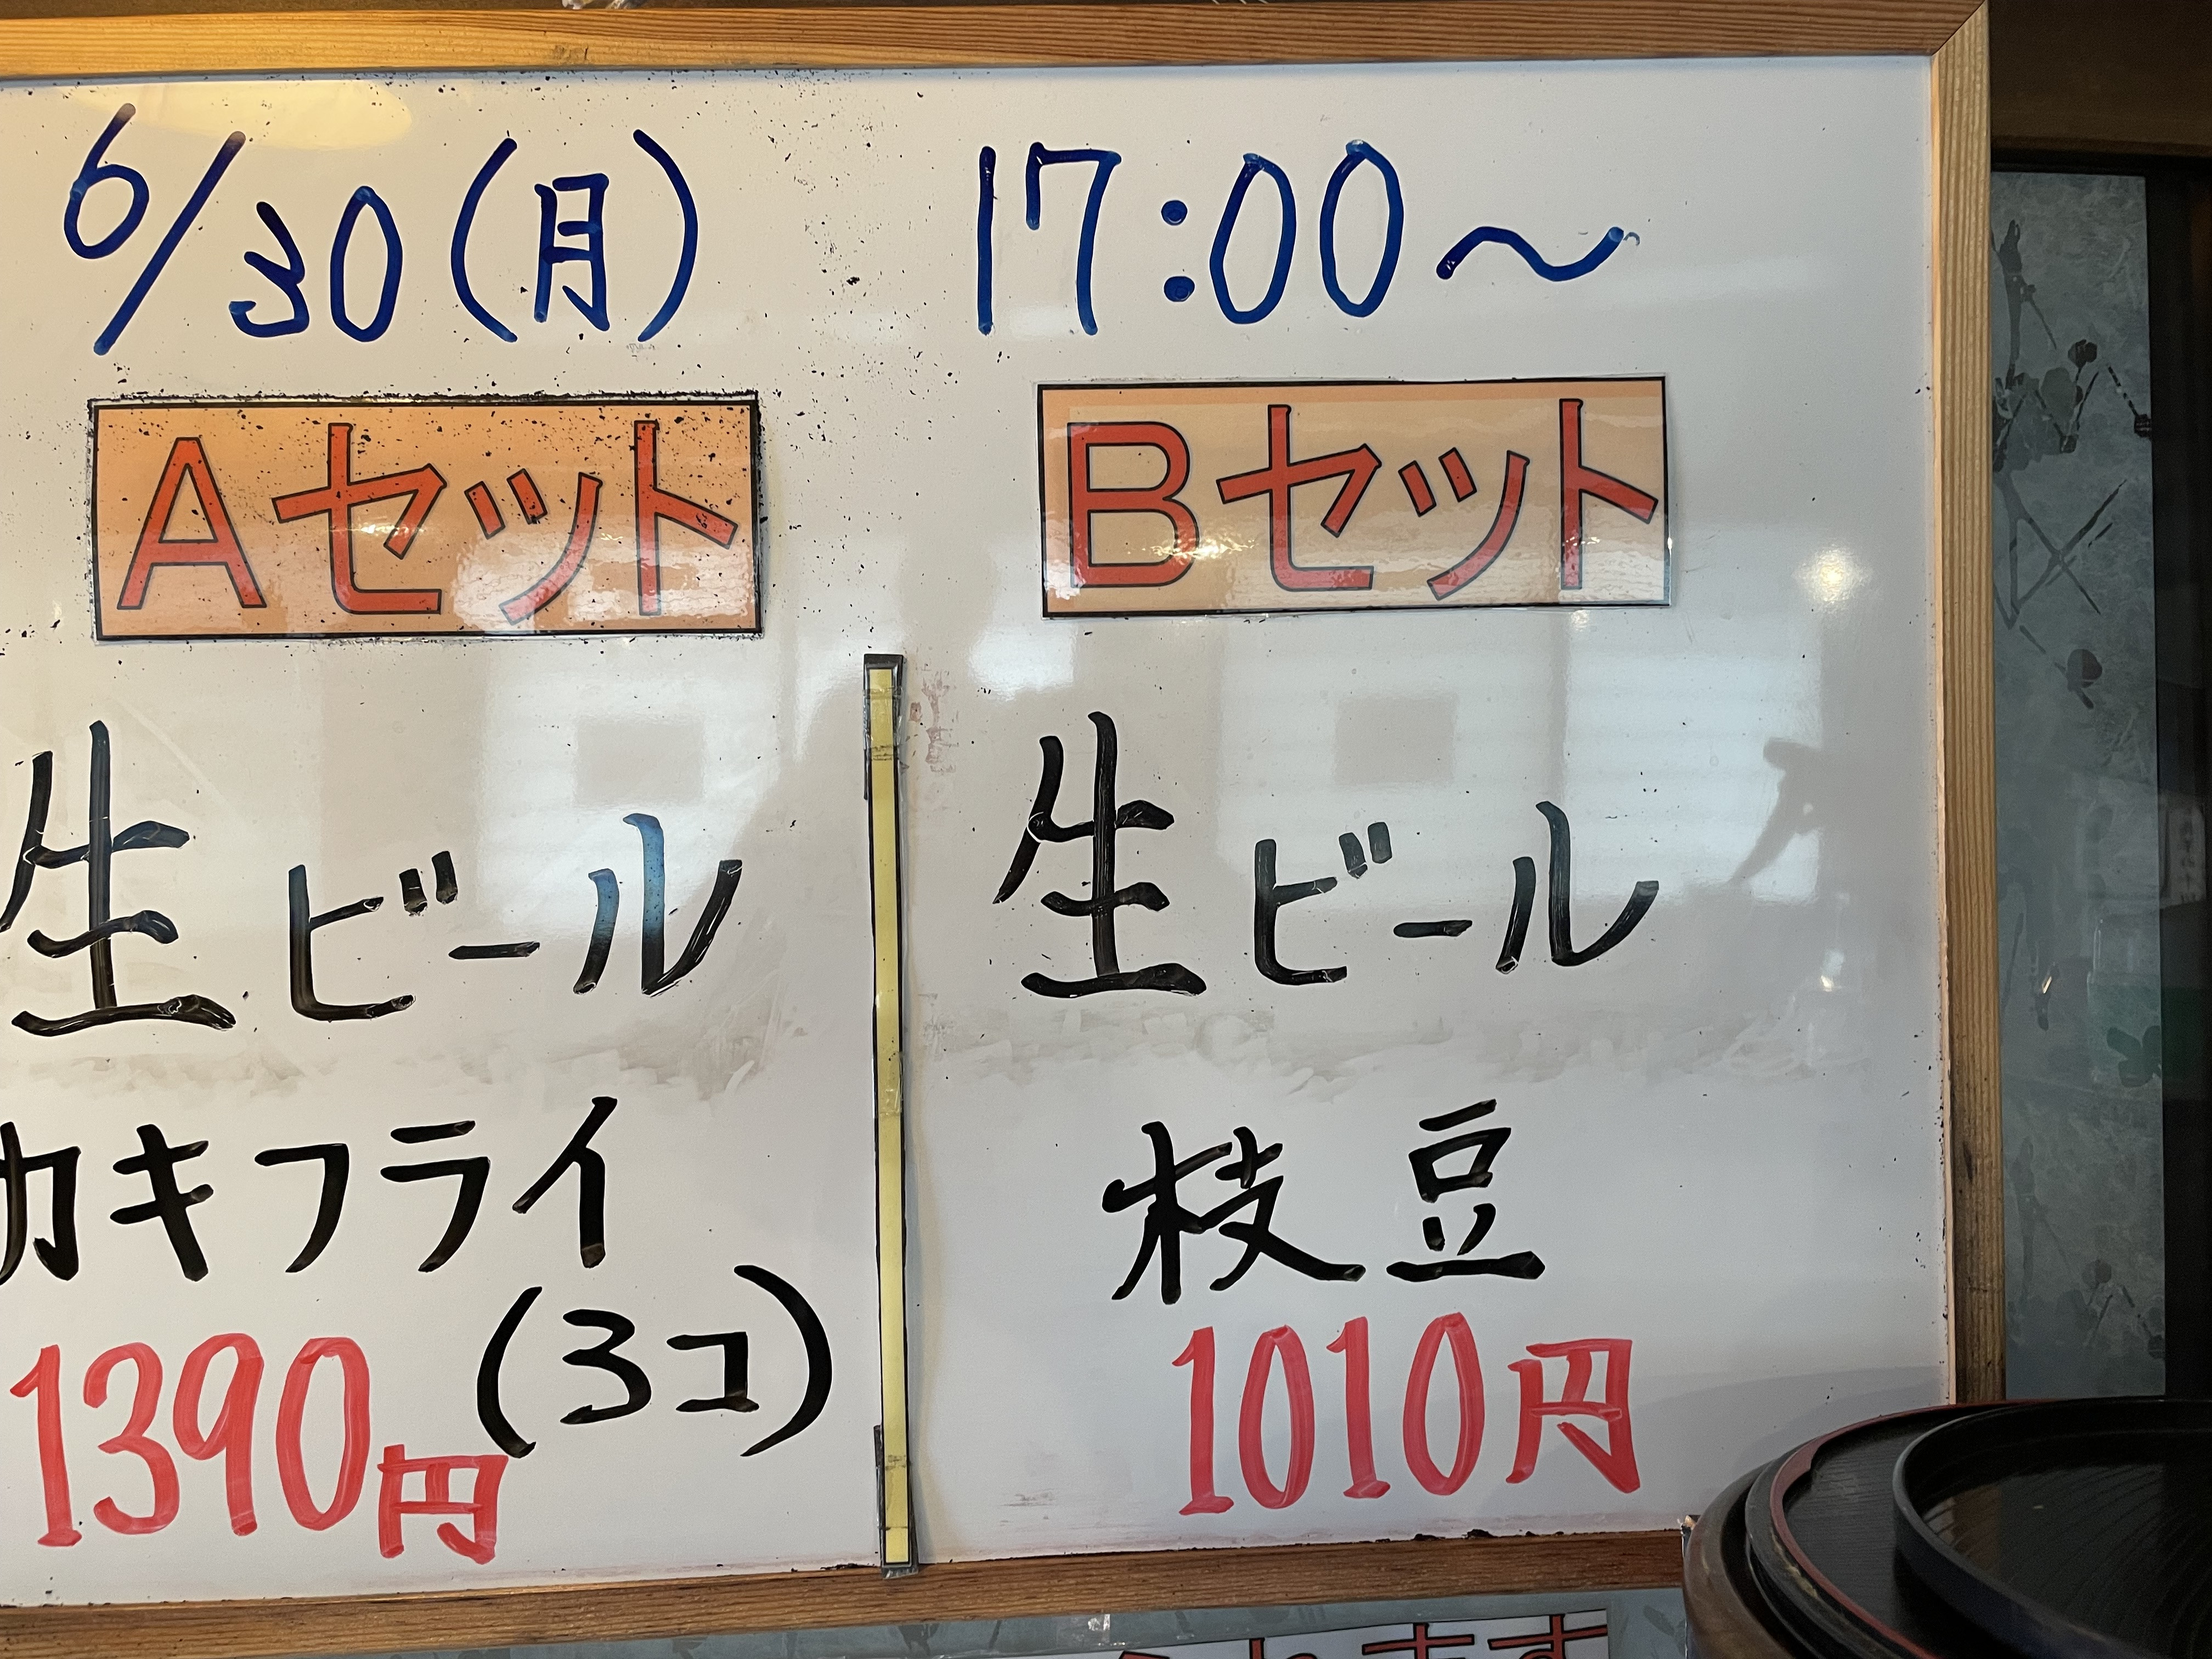 6/30(月) 17:00～
Aセット
Bセット
生ビール
カキフライ
(3コ)
1390円
生ビール
枝豆
1010円
ます